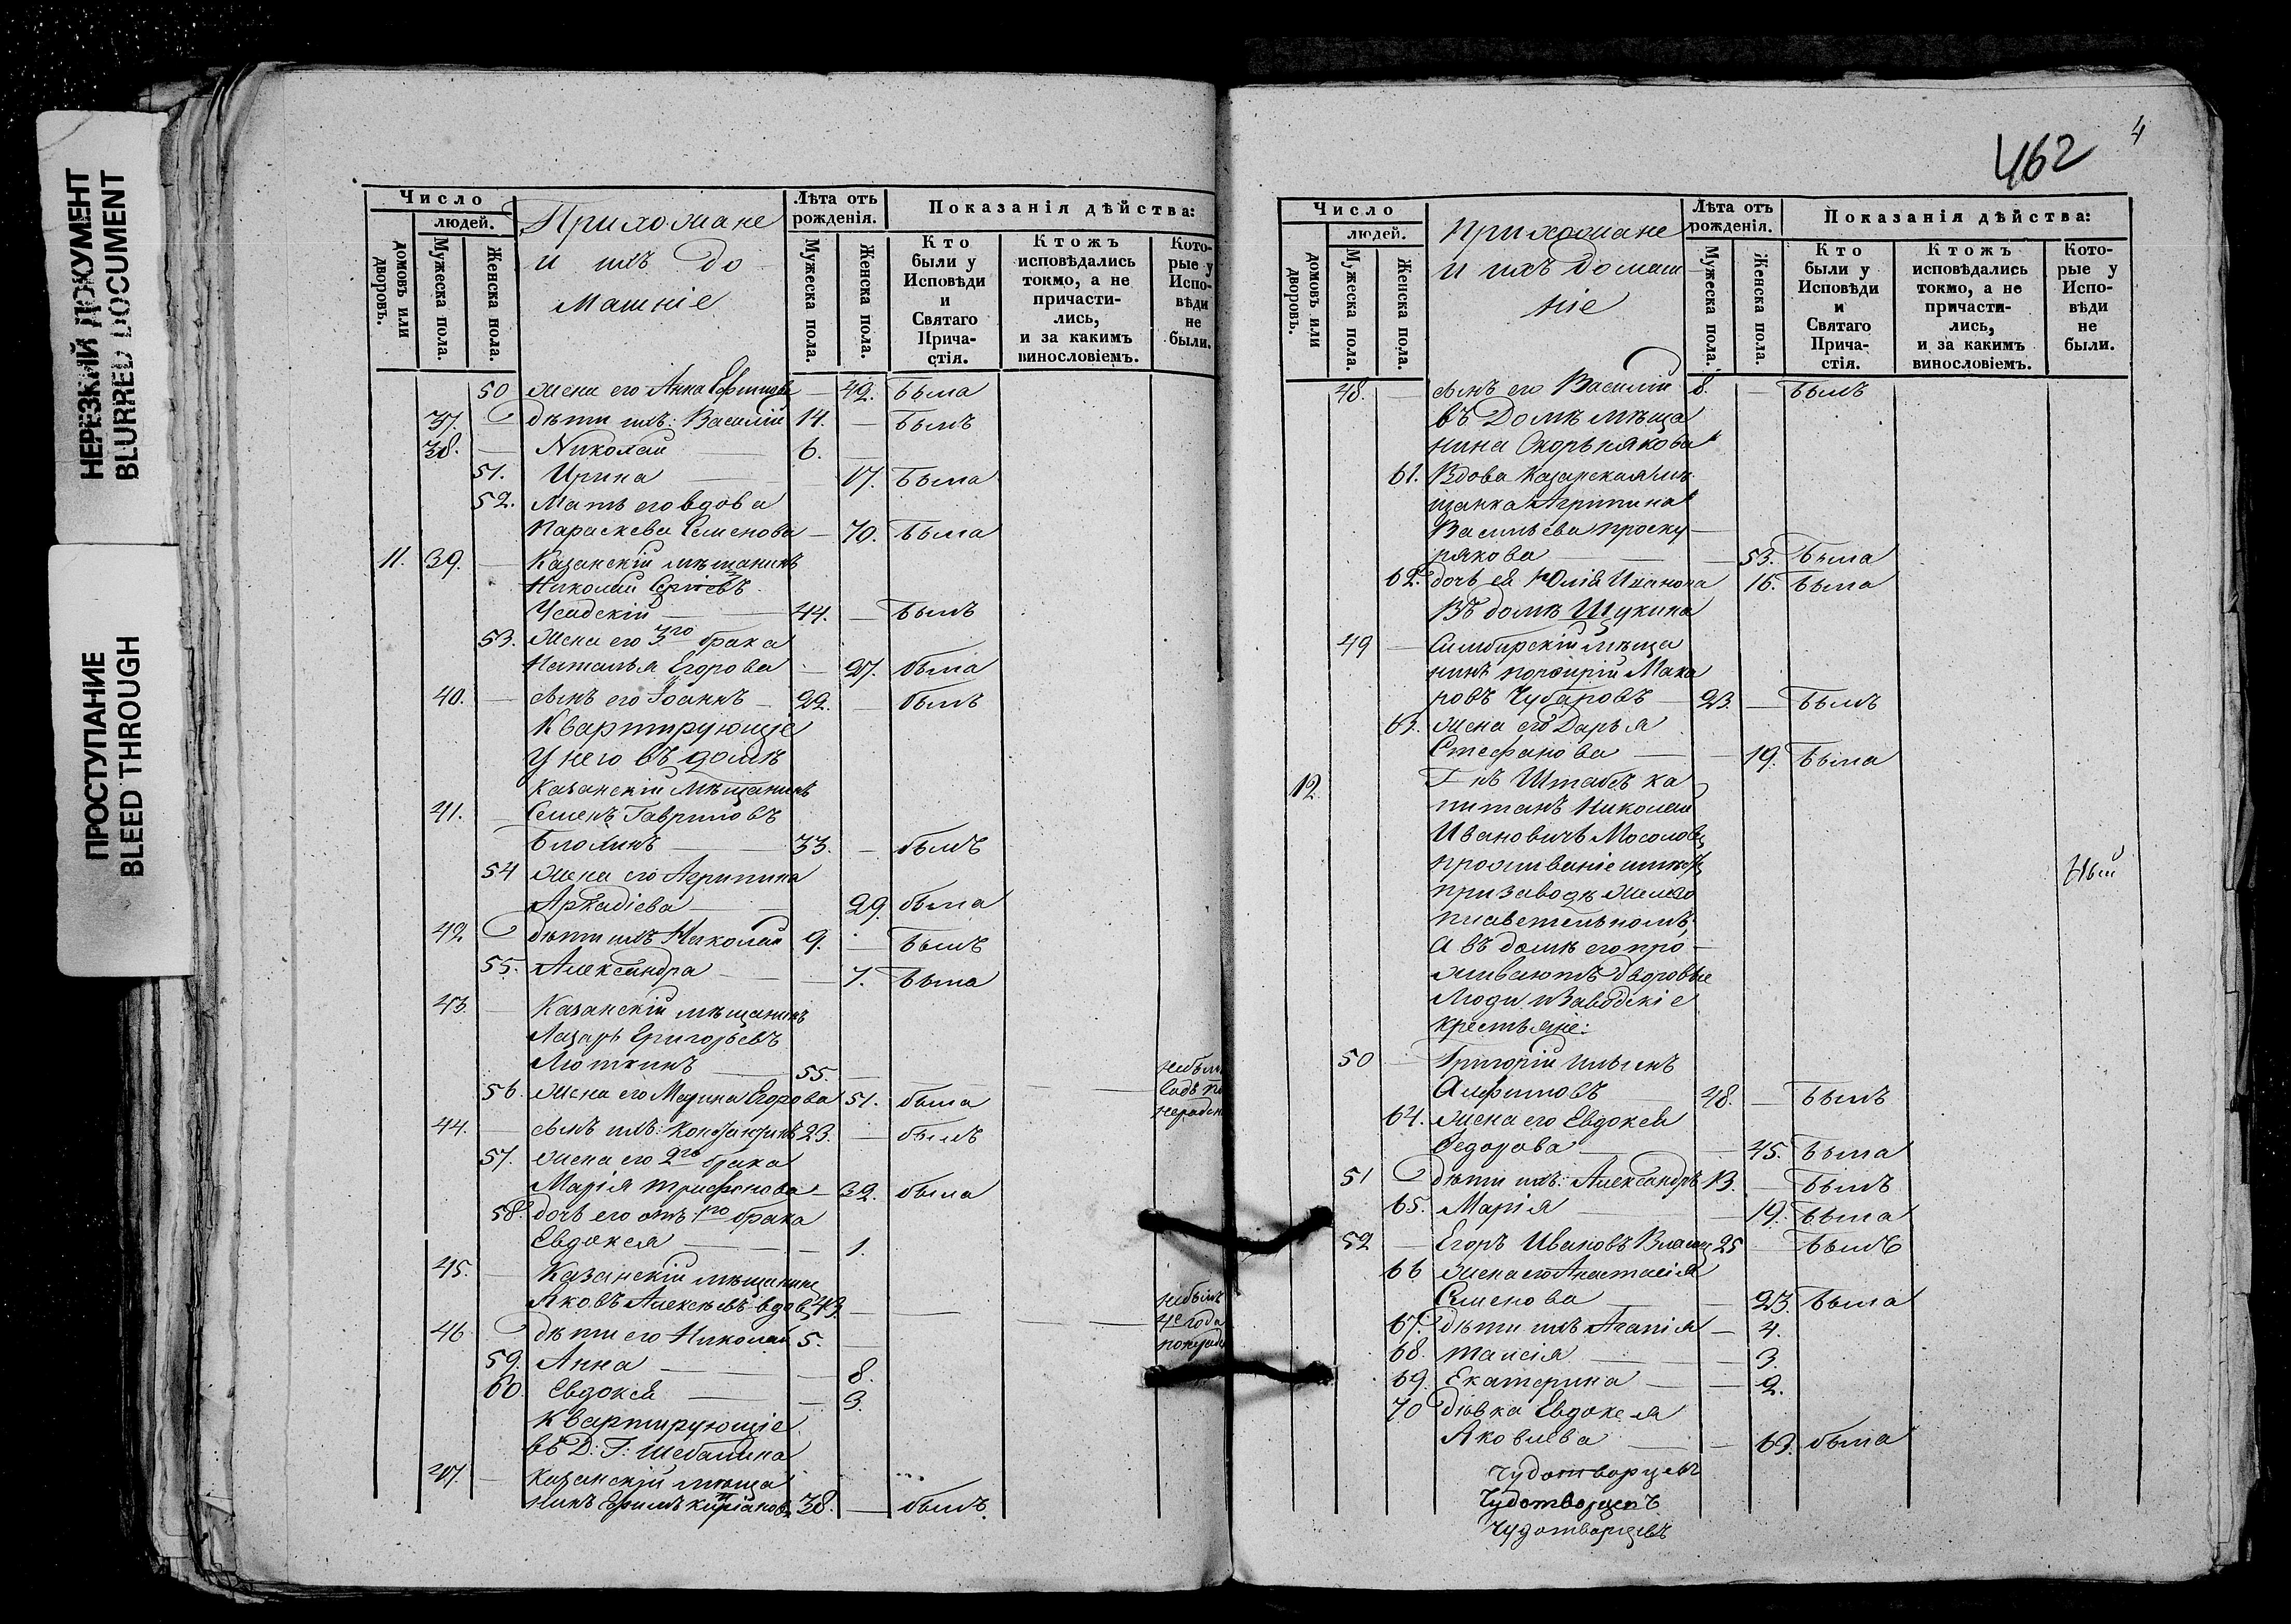 НЕРЕЗКИЙ ДОКУМЕНТ
BLURRED DOCUMENT
ПРОСТУПАНИЕ
BLEED THROUGH
Число
людей.
домовъ или дворовъ.
Мужеска пола.
Женска пола.
Прихожане
и ихъ до
машніе
Лѣта отъ рожденія.
Мужеска пола.
Женска пола.
Показанія дѣйства:
Кто были у Исповѣди и Святаго Прича-стія.
Ктожъ исповѣдались токмо, а не причасти-лись, и за какимъ винословіемъ.
Кото-рые у Испо-вѣди не были.
50 жена его Анна Ефимова — 42. была
37. дѣти ихъ: Василій 14. — былъ
38. — Николай 6. —
51. Ирина — 17. была
52. Мать его вдова
Параскева Семенова — 70. была
11. 39. — Казанскій мѣщанинъ
Николай Сергіевъ
Усадскій — 44. — былъ
53. Жена его 3го брака
Наталья Егорова — 27. была
40. — сынъ его Іоаннъ — 22. — былъ
Квартирующіе
у него въ домѣ
Казанскій мѣщанинъ
41. — Семенъ Гавриловъ
33. — былъ
54 жена его Агрипина
Аркадіева — 29. была
42 дѣти ихъ Николай 9. — былъ
55. Александра — 7. была
43. — Казанскій мѣщанинъ
Лазарь Григорьевъ
55. —
56. Жена его Марина Егорова 51. была
44. — сынъ ихъ: Константинъ 23. — былъ
57. Жена его 2го брака
Марія Трифонова — 32. была
58. дочь его отъ 1го брака
Евдокея — 1.
45. — Казанскій мѣщанинъ
Яковъ Алексѣевъ вдовъ 43. —
46 дѣти его Николай 5. —
59. Анна — 8.
60. Евдокея — 3.
квартирующіе
въ Д: Г: Шебалина
47. — Казанскій мѣща
нинъ Ефимъ 38. — былъ.
462
4
Число
людей.
домовъ или дворовъ.
Мужеска пола.
Женска пола.
Прихожане
и ихъ домаш
ніе
Лѣта отъ рожденія.
Мужеска пола.
Женска пола.
Показанія дѣйства:
Кто были у Исповѣди и Святаго Прича-стія.
Ктожъ исповѣдались токмо, а не причасти-лись, и за какимъ винословіемъ.
Кото-рые у Испо-вѣди не были.
48. — сынъ его Василій 8. — былъ
въ Домѣ мѣща
нина Скорнякова
61. Вдова Казанская мѣ
щанка Агрипина
Васильева Проску
рякова — 53. была
62. дочь ея Юлія Иванова 15. была
Въ домѣ Щукина
49 — Симбирскій мѣща
нинъ Порфирій Мака
ровъ Чубаровъ — 23. — былъ
63. жена его Дарья
Стефанова — 19. была
12. Г-нъ Штабсъ ка
питанъ Николай
Ивановичъ Мосоловъ
при заводѣ желѣзо
плавительномъ,
а въ домѣ его про-
живаютъ дворовые
Люди и Заводскіе
крестьяне:
50 — Григорій Ильинъ
Алфимовъ 48. — былъ
64. жена его Евдокея
Федорова — 45. была
51 дѣти ихъ: Александръ 13. — былъ
65. Марія — 19. была
52 — Егоръ Ивановъ 25 — былъ
66 Жена его Анастасія
Семенова — 23. была
67. дѣти ихъ Агапія — 4.
68. Таисія — 3.
69. Екатерина — 2.
70 дѣвка Евдокея
Яковлева — 63. была
Чудотворцевъ
Чудотворцевъ
Чудотворцевъ